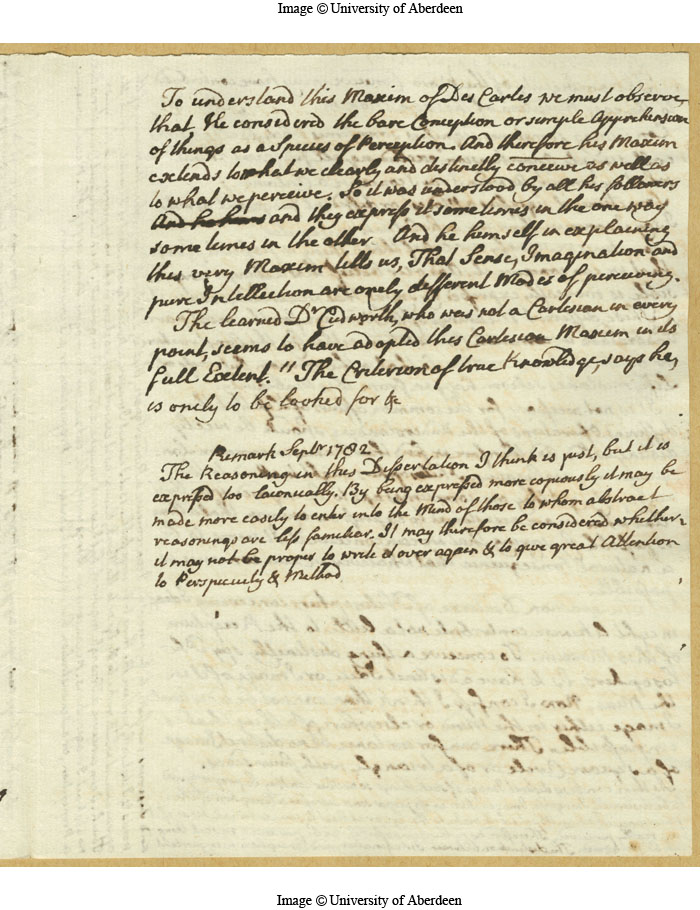 Image © University of Aberdeen
To understand this Maxim of Des Cartes we must observe,
that He considered the bare Conception or simple Apprehension
of things as a Species of Perception. And therefore his Maxim
extends to what we clearly and distinctly conceive as well as
to what we perceive. So it was understood by all his followers
And he hims and they express it sometimes in the one way
sometimes in the other And he himself in explaining
this very Maxim tells us, That Sense, Imagination and
pure Intellection are onely different Modes of perceiving.
The learned Dr Cudworth, who was not a Cartesian in every
point, seems to have adopted this Cartesian Maxim in its
full Extent. "The Criterion of true Knowledge, says he,
is onely to be looked for &c
Remark Septr 1782
The Reasoning in this Dissertation I think is just, but it is
expressed too laconically. By being expressed more copiously it may be
made more easily to enter into the Mind of those to whom abstract
reasonings are less familiar. It may therefore be considered whether
it may not be proper to write it over again & to give great Attention
to Perspicuity & Method
Image © University of Aberdeen